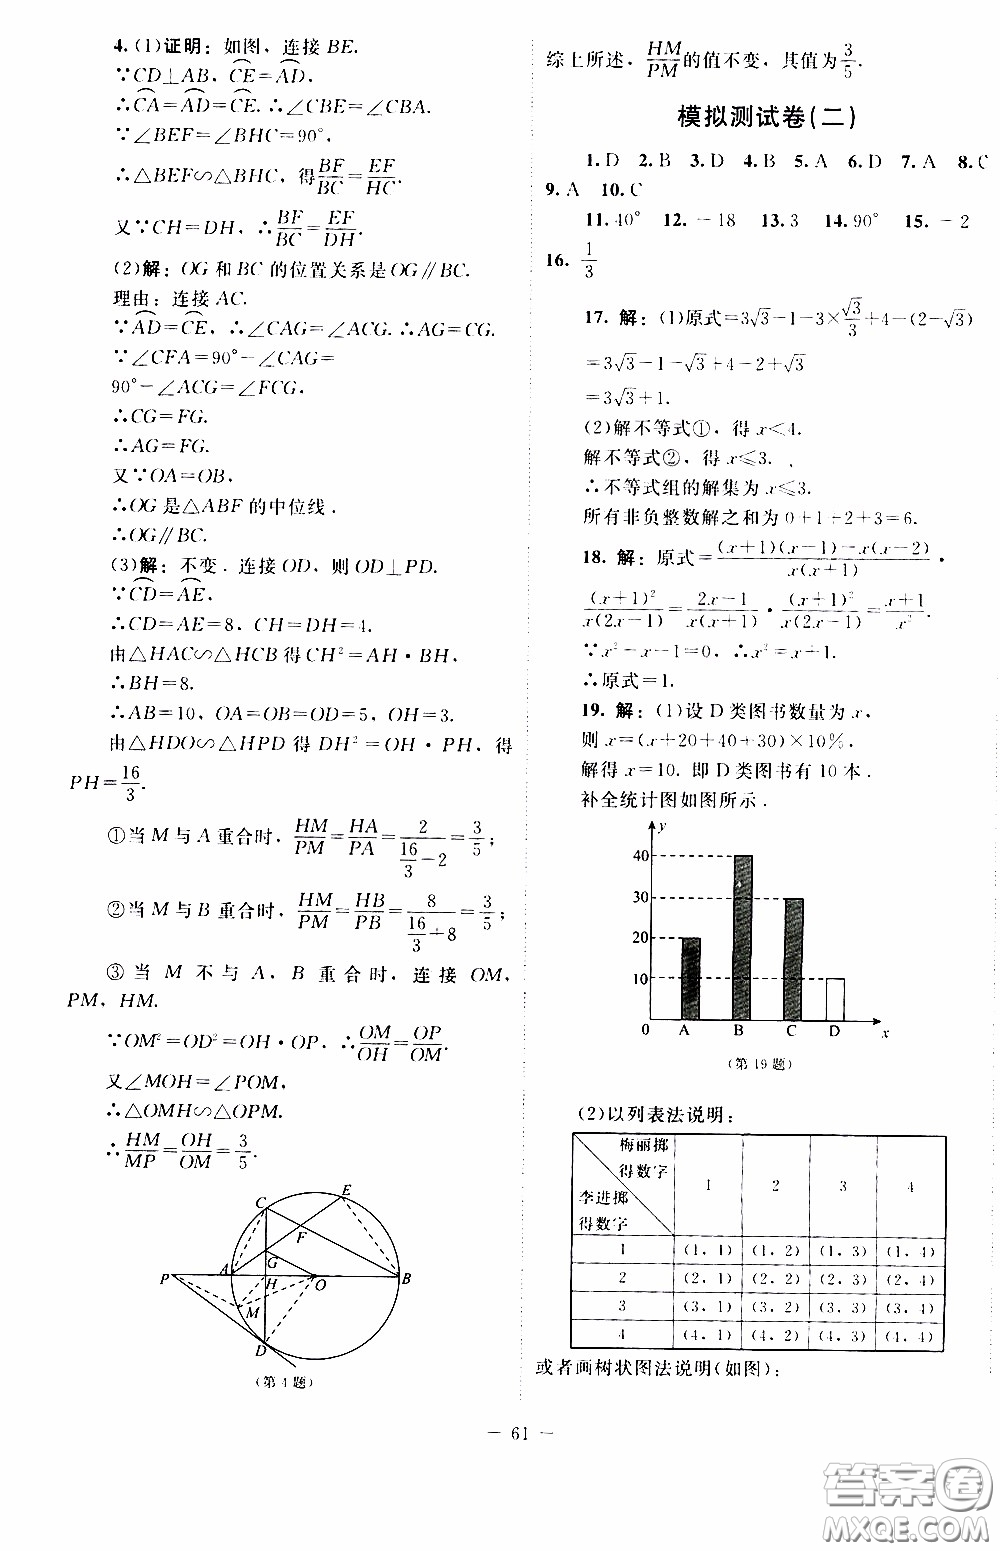 4.(1)证明：如图，连接BE.
∵CD⊥AB，⌒CE=⌒AD，
∴⌒CA=⌒AD=⌒CE.∴∠CBE=∠CBA.
∵∠BEF=∠BHC=90°，
∴△BEF∽△BHC，得BF/BC=EF/HC.
又∵CH=DH，∴BF/BC=EF/DH.
(2)解：OG和BC的位置关系是OG∥BC.
理由：连接AC.
∵⌒AD=⌒CE，∴∠CAG=∠ACG.∴AG=CG.
∵∠CFA=90°-∠CAG=
90°-∠ACG=∠FCG.
∴CG=FG.
∴AG=FG.
又∵OA=OB，
∴OG是△ABF的中位线.
∴OG∥BC.
(3)解：不变.连接OD，则OD⊥PD.
∵⌒CD=⌒AE，
∴CD=AE=8，CH=DH=4.
由△HAC∽△HCB得CH²=AH·BH，
∴BH=8.
∴AB=10，OA=OB=OD=5，OH=3.
由△HDO∽△HPD得DH²=OH·PH，得
PH=16/3.
①当M与A重合时，HM/PM=HA/PA=2/(16/3-2)=3/5；
②当M与B重合时，HM/PM=HB/PB=8/(16/3+8)=3/5；
③当M不与A，B重合时，连接OM，
PM，HM.
∵OM²=OD²=OH·OP，∴OM/OH=OP/OM.
又∠MOH=∠POM，
∴△OMH∽△OPM.
∴HM/MP=OH/OM=3/5.
C E F G A P H O B M D
(第4题)
综上所述，HM/PM的值不变，其值为3/5.
模拟测试卷(二)
1.D 2.B 3.D 4.B 5.A 6.D 7.A 8.C
9.A 10.C
11.40° 12.-18 13.3 14.90° 15.-2
16.1/3
17.解：(1)原式=3√3-1-3×√3/3+4-(2-√3)
=3√3-1-√3+4-2+√3
=3√3+1.
(2)解不等式①，得x<4.
解不等式②，得x≤3.
∴不等式组的解集为x≤3.
所有非负整数解之和为0+1+2+3=6.
18.解：原式=((x+1)(x-1)-x(x-2))/(x(x+1))·
(x+1)²/(x(2x-1))=(2x-1)/(x(x+1))·(x+1)²/(x(2x-1))=(x+1)/x².
∵x²-x-1=0，∴x²=x+1.
∴原式=1.
19.解：(1)设D类图书数量为x，
则x=(x+20+40+30)×10%.
解得x=10.即D类图书有10本.
补全统计图如图所示.
y
40
30
20
10
0 A B C D x
(第19题)
(2)以列表法说明：
梅丽掷得数字 李进掷得数字 1 2 3 4
1 (1，1) (1，2) (1，3) (1，4)
2 (2，1) (2，2) (2，3) (2，4)
3 (3，1) (3，2) (3，3) (3，4)
4 (4，1) (4，2) (4，3) (4，4)
或者画树状图法说明(如图)：
— 61 —
答案卷
MXQE.COM